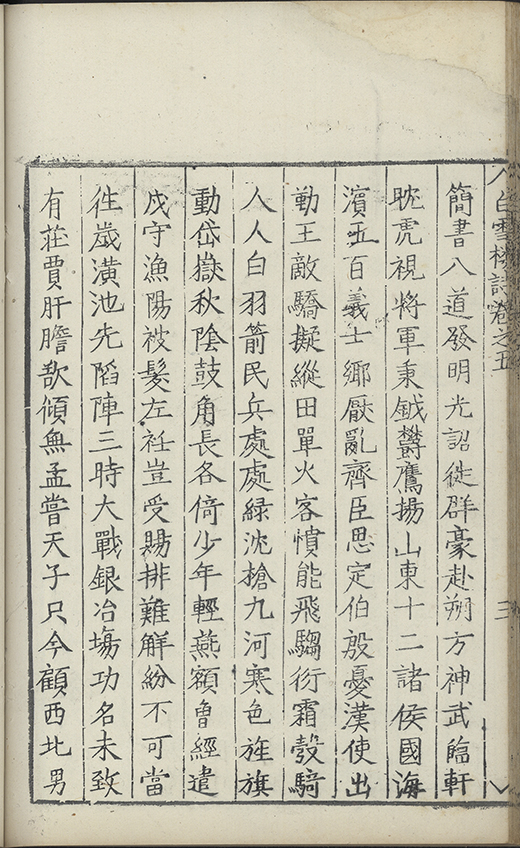 白雪樓詩卷之五
三
簡書八道發明光詔徙群豪赴朔方神武臨軒
眈虎視將軍秉鉞鬱鷹揚山東十二諸侯國海
濱五百義士鄉厭亂齊臣思定伯殷憂漢使出
勤王敵驕擬縱田單火客憤能飛騶衍霜彀騎
人人白羽箭民兵處處綠沈槍九河寒色旌旗
動岱嶽秋陰鼓角長各倚少年輕燕額魯經遣
戍守漁陽被髮左衽豈受賜排難解紛不可當
往歲潢池先陷陣三時大戰銀冶塲功名未致
有莊賈肝膽欲傾無孟嘗天子只今顧西北男